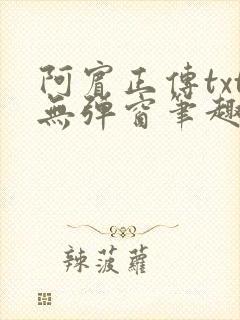 阿賓正傳txt
無彈窗筆趣
辣菠蘿